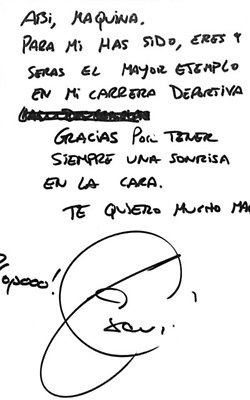 ABI, MAQUINA.
PARA MI HAS SIDO, ERES Y
SERAS EL MAYOR EJEMPLO
EN MI CARRERA DEPORTIVA
GRACIAS POR TENER
SIEMPRE UNA SONRISA
EN LA CARA.
TE QUIERO MUCHO